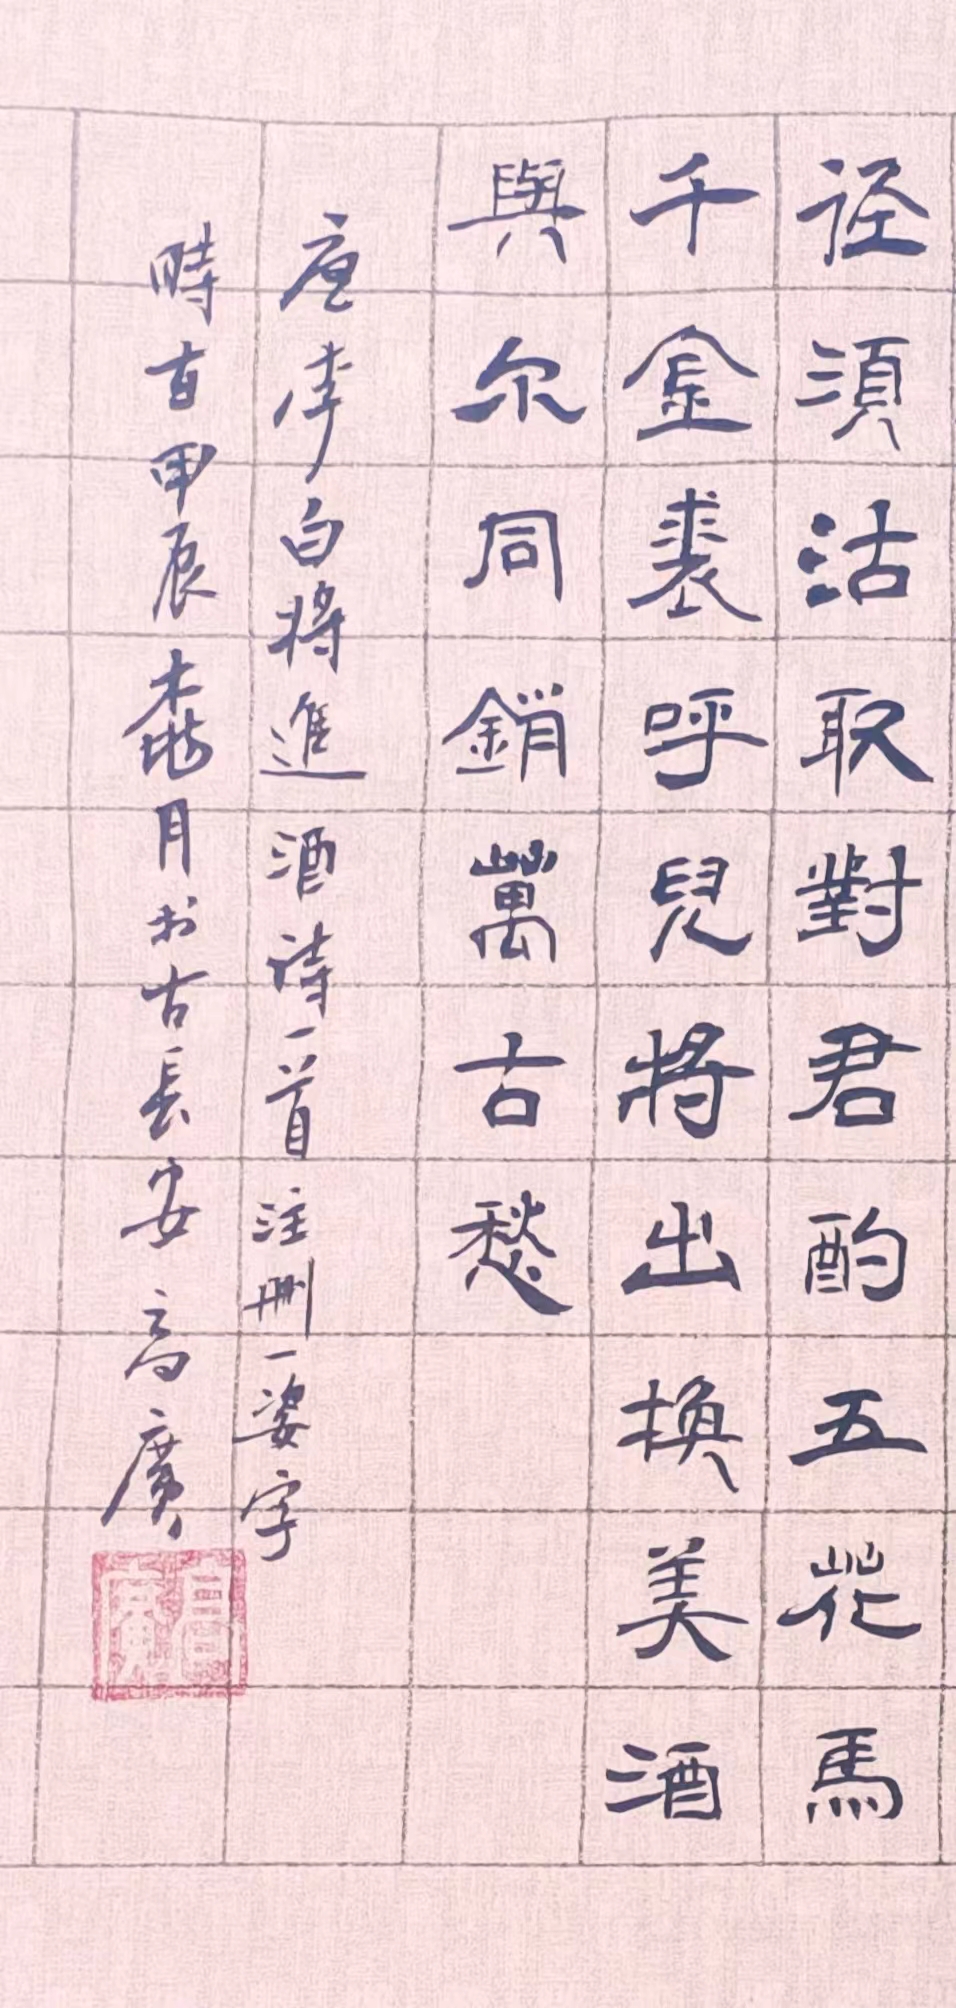 径須沽取對君酌五花馬
千金裘呼兒將出換美酒
與尔同銷萬古愁
唐李白将進酒诗一首 注删一姿字
時在甲辰月於古長安高廣
高廣